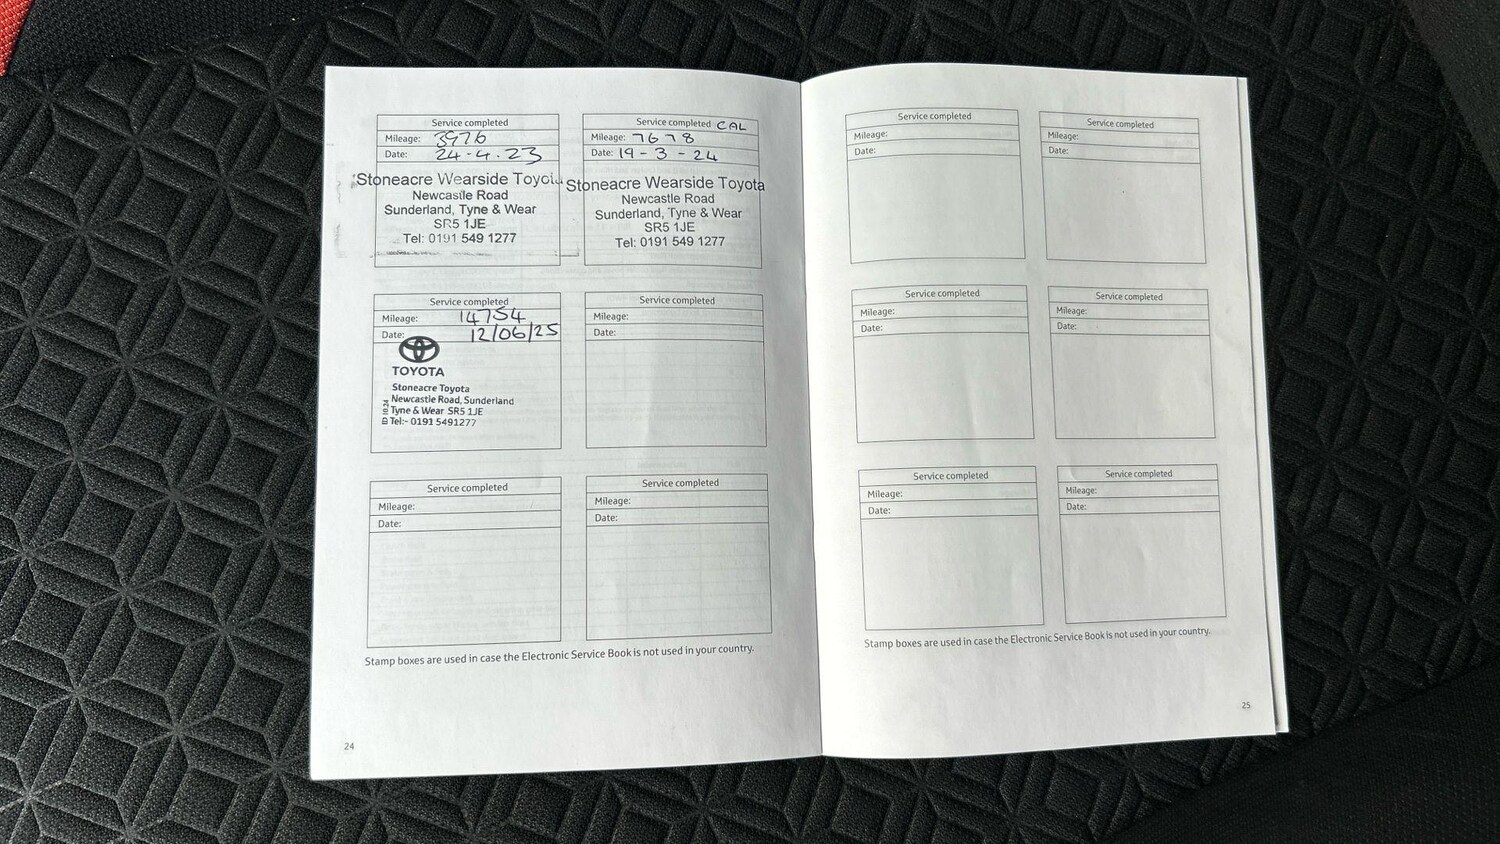 Service completed
Mileage: 3976
Date: 24-4.23
Stoneacre Wearside Toyota
Newcastle Road
Sunderland, Tyne & Wear
SR5 1JE
Tel: 0191 549 1277
Service completed CAL
Mileage: 7678
Date: 19-3-24
Stoneacre Wearside Toyota
Newcastle Road
Sunderland, Tyne & Wear
SR5 1JE
Tel: 0191 549 1277
Service completed
Mileage: 14754
Date: 12/06/25
TOYOTA
Stoneacre Toyota
Newcastle Road, Sunderland
Tyne & Wear SR5 1JE
Tel:- 0191 5491277
Service completed
Mileage:
Date:
Service completed
Mileage:
Date:
Service completed
Mileage:
Date:
Stamp boxes are used in case the Electronic Service Book is not used in your country.
24
Service completed
Mileage:
Date:
Service completed
Mileage:
Date:
Service completed
Mileage:
Date:
Service completed
Mileage:
Date:
Service completed
Mileage:
Date:
Service completed
Mileage:
Date:
Stamp boxes are used in case the Electronic Service Book is not used in your country.
25